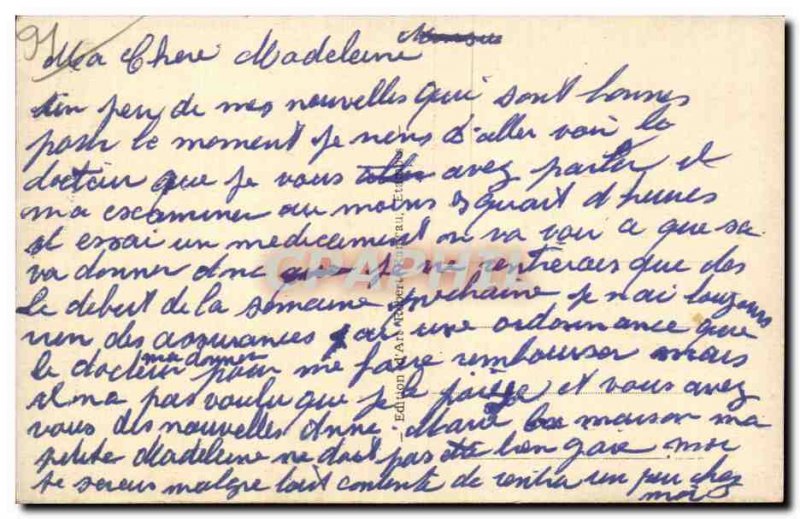 91
Ma Chere Madeleine
un peu de mes nouvelles qui sont bonnes
pour le moment je viens d'aller voir le
docteur que je vous avez parler il
ma escaminer au moins 3 quart d heures
il essai un medicament on va voir a que sa
va donner donc je ne rentrerais que des
le debut de la semaine prochaine je n'ai toujours
rien des assurances j'ai une ordonnance que
le docteur ma donner pour me faire rembourser mais
il ma pas voulu que je la paiége et vous avez
vous des nouvelles Anne Marie la maison ma
petite Madeleine ne doit pas etre bien gaie moi
je serais malgre tout contente de rentrer un peu chez
moi
Edition d'Art Robert Etampes
CPAPHIL